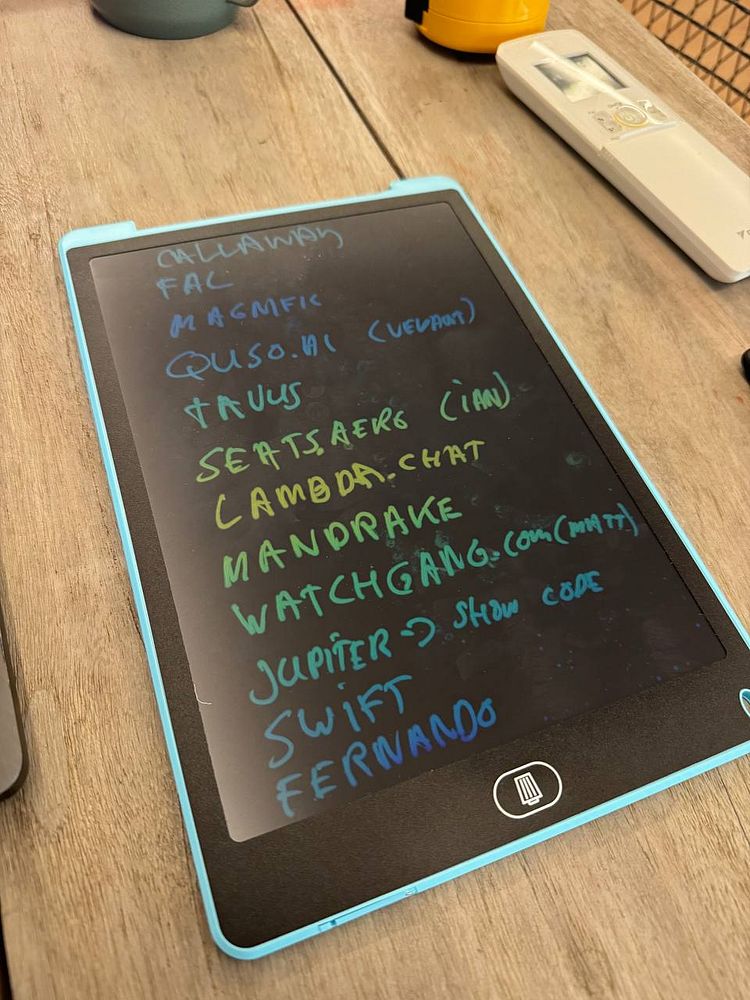 CALLAWAY
FAL
MAGNIFIC
QUSO.AI (VEDANT)
TAVUS
SEATS.AERO (iAN)
LAMBDA.CHAT
MANDRAKE
WATCHGANG.COM (MATT)
JUPiTER → SHOW CODE
SWiFT
FERNANDO